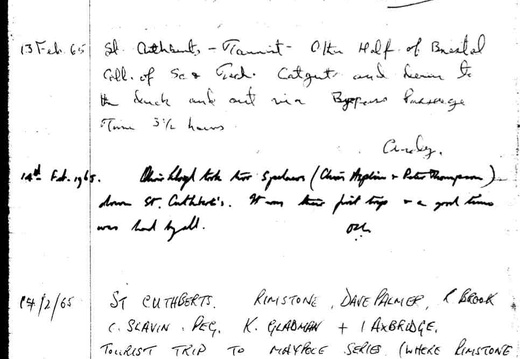 13 Feb. 65 St. Cuthberts - Tourist - Other Half of Bristol
Coll. of Sc & Tech. Catgut and down to
the duck and out via Bypass Passage
Time 3½ hours
Andy.
14th Feb. 1965. Chris Lloyd took two Spelaeos (Chris Hopkins + Pete Thompson)
down St. Cuthbert's. It was their first trip & a good time
was had by all.
14/2/65 ST CUTHBERTS. RIMSTONE, DAVE PALMER, R BROOK
C. SLAVIN, PEG, K. GLADMAN + 1 AXBRIDGE,
TOURIST TRIP TO MAYPOLE SERIES (WHERE RIMSTONE